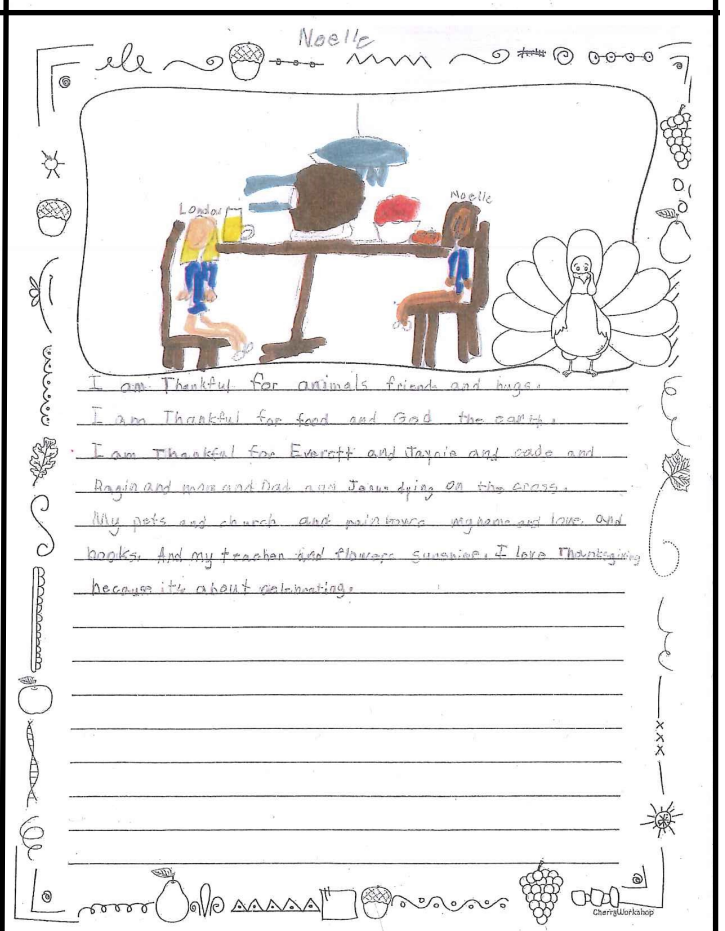 Noelle
London
Noelle
I am Thankful for animals friends and hugs.
I am Thankful for food and God the earth.
I am Thankful for Everett and Jaycie and cade and
Ragin and mom and Dad and Jesus dying on the cross.
My pets and church and rainbows my home and love. and
books. And my teacher and flowers sunshine. I love Thanksgiving
because it's about celebrating.
CherryWorkshop